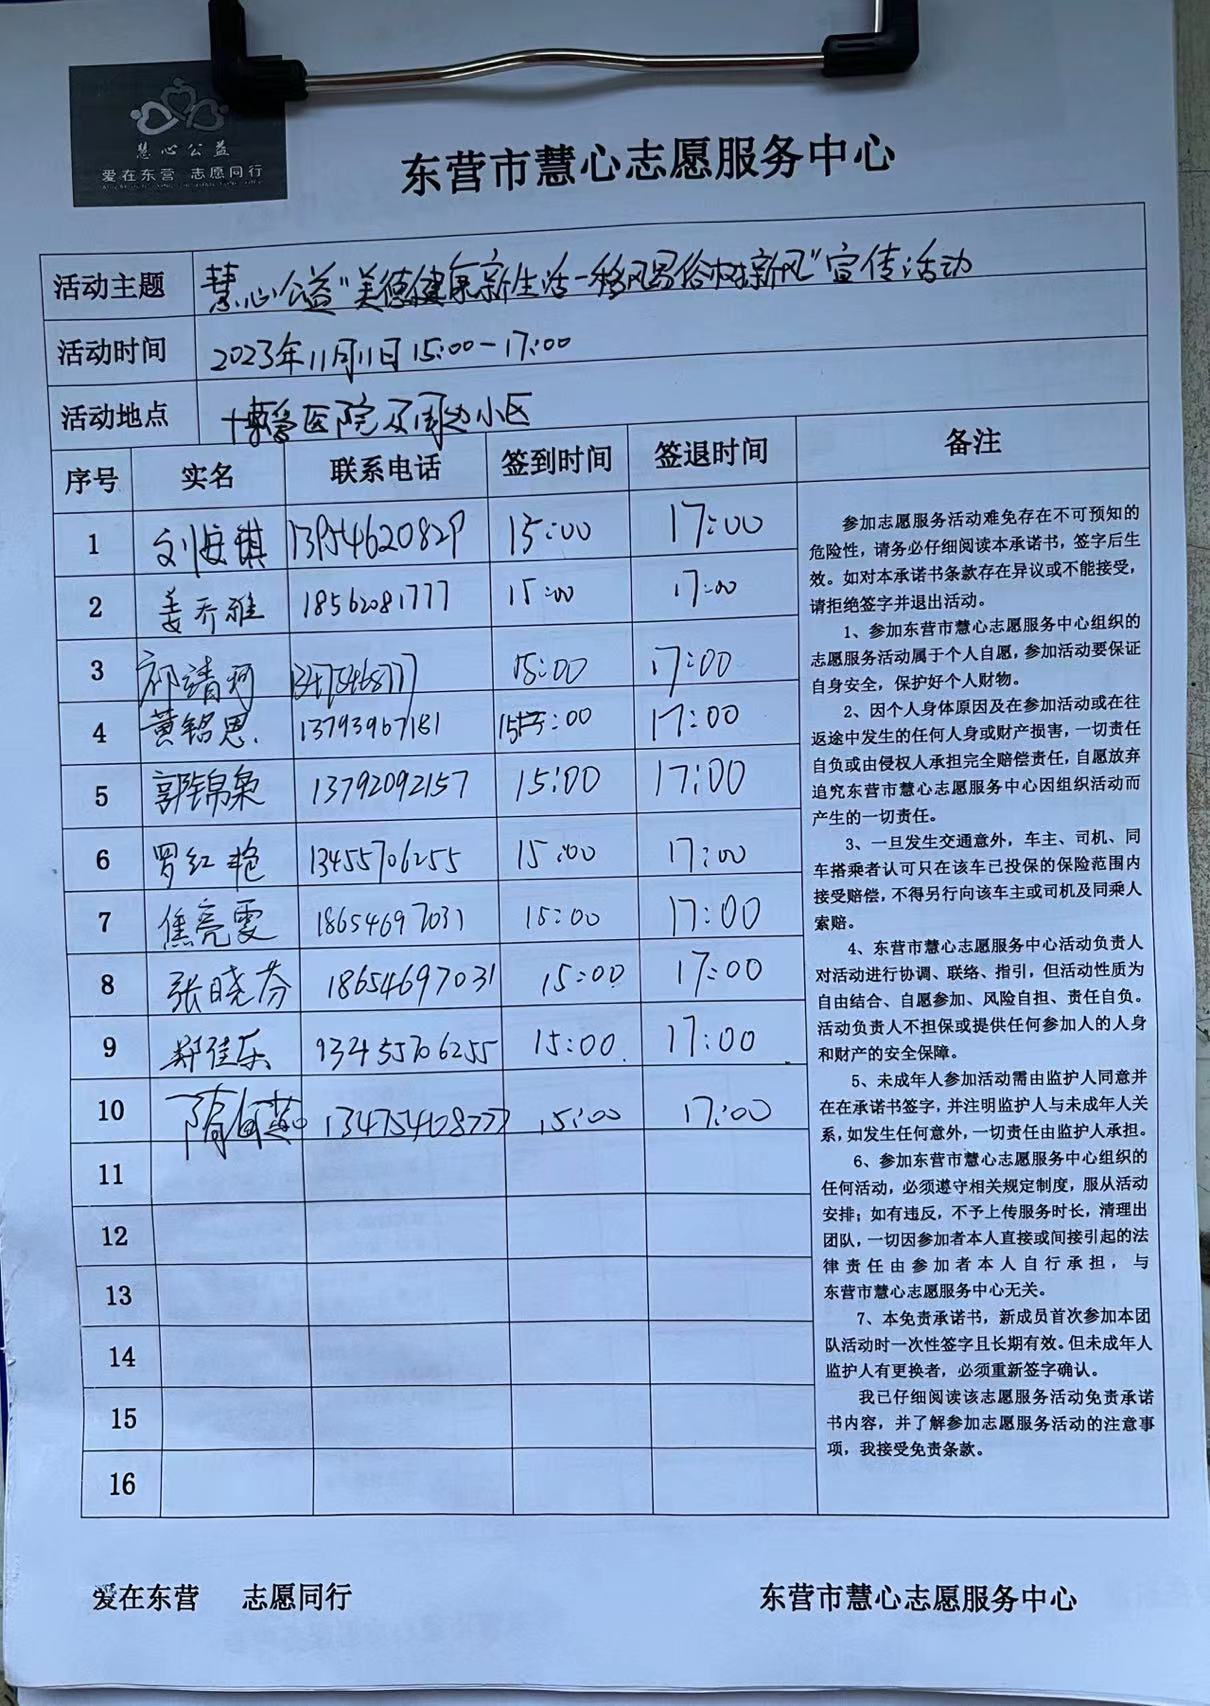 慧心公益
爱在东营 志愿同行
东营市慧心志愿服务中心
活动主题 慧心公益"美德健康新生活-移风易俗树新风"宣传活动
活动时间 2023年11月11日 15:00-17:00
活动地点 博爱医院及周边小区
序号 实名 联系电话 签到时间 签退时间 备注
1 刘安镇 13954620829 15:00 17:00
2 姜乔雅 18562081777 15:00 17:00
3 祁靖珂 15:00 17:00
4 黄铭思 13793967181 15:00 17:00
5 郭锦枭 13792092157 15:00 17:00
6 罗红艳 13455706255 15:00 17:00
7 焦亮雯 18654697031 15:00 17:00
8 张晓芬 18654697031 15:00 17:00
9 郑佳乐 93455706255 15:00 17:00
10 隋 15:00 17:00
11
12
13
14
15
16
参加志愿服务活动难免存在不可预知的
危险性，请务必仔细阅读本承诺书，签字后生
效。如对本承诺书条款存在异议或不能接受，
请拒绝签字并退出活动。
1、参加东营市慧心志愿服务中心组织的
志愿服务活动属于个人自愿，参加活动要保证
自身安全，保护好个人财物。
2、因个人身体原因及在参加活动或在往
返途中发生的任何人身或财产损害，一切责任
自负或由侵权人承担完全赔偿责任，自愿放弃
追究东营市慧心志愿服务中心因组织活动而
产生的一切责任。
3、一旦发生交通意外，车主、司机、同
车搭乘者认可只在该车已投保的保险范围内
接受赔偿，不得另行向该车主或司机及同乘人
索赔。
4、东营市慧心志愿服务中心活动负责人
对活动进行协调、联络、指引，但活动性质为
自由结合、自愿参加、风险自担、责任自负。
活动负责人不担保或提供任何参加人的人身
和财产的安全保障。
5、未成年人参加活动需由监护人同意并
在在承诺书签字，并注明监护人与未成年人关
系，如发生任何意外，一切责任由监护人承担。
6、参加东营市慧心志愿服务中心组织的
任何活动，必须遵守相关规定制度，服从活动
安排；如有违反，不予上传服务时长，清理出
团队，一切因参加者本人直接或间接引起的法
律责任由参加者本人自行承担，与
东营市慧心志愿服务中心无关。
7、本免责承诺书，新成员首次参加本团
队活动时一次性签字且长期有效。但未成年人
监护人有更换者，必须重新签字确认。
我已仔细阅读该志愿服务活动免责承诺
书内容，并了解参加志愿服务活动的注意事
项，我接受免责条款。
爱在东营 志愿同行 东营市慧心志愿服务中心